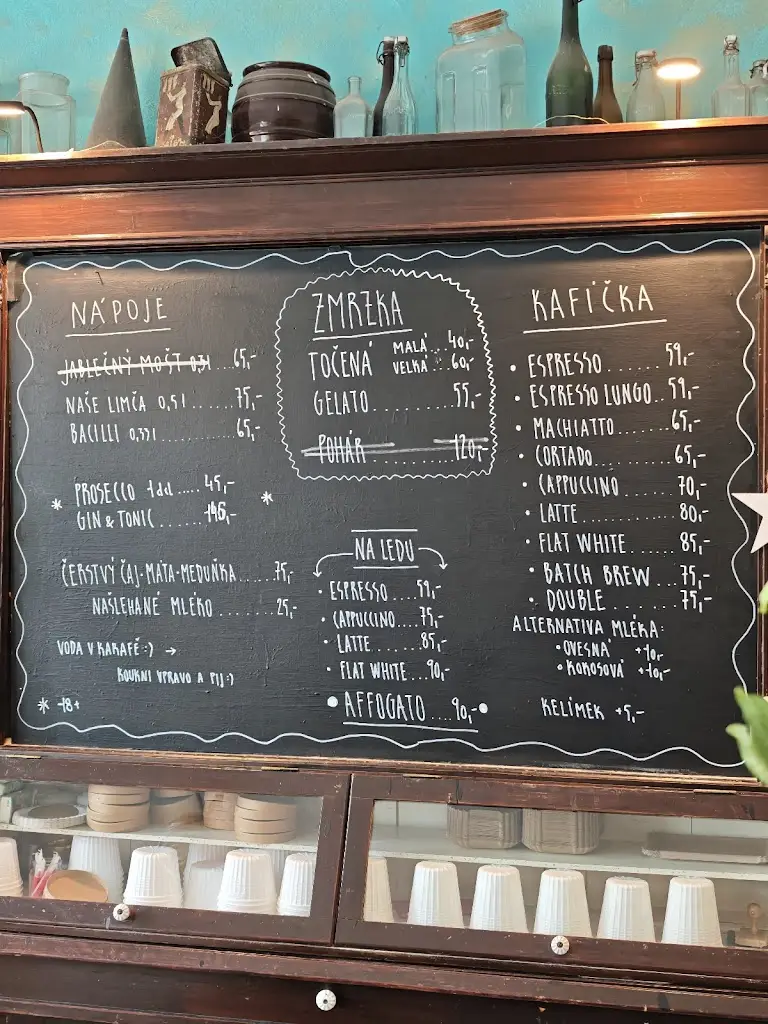 NÁPOJE
JABLEČNÝ MOŠT 0,3l ... 65,-
NAŠE LIMČA 0,5l ...... 75,-
BACILLI 0,33l ............ 65,-
* PROSECCO 1dcl ..... 45,- *
GIN & TONIC ....... 145,-
ČERSTVÝ ČAJ-MÁTA-MEDUŇKA ..... 75,-
NAŠLEHANÉ MLÉKO ......... 25,-
VODA V KARAFĚ :) →
KOUKNI VPRAVO A PIJ :)
* -18+
ZMRZKA
TOČENÁ MALÁ .. 40,-
VELKÁ ... 60,-
GELATO .......... 55,-
POHÁR .......... 120,-
NA LEDU
• ESPRESSO ..... 59,-
• CAPPUCCINO .... 75,-
• LATTE ......... 85,-
• FLAT WHITE .. 90,-
• AFFOGATO .... 90,- •
KAFÍČKA
• ESPRESSO ....... 59,-
• ESPRESSO LUNGO .. 59,-
• MACHIATTO ....... 65,-
• CORTADO .......... 65,-
• CAPPUCCINO ...... 70,-
• LATTE ............ 80,-
• FLAT WHITE ...... 85,-
• BATCH BREW ... 75,-
• DOUBLE ......... 75,-
ALTERNATIVA MLÉKA:
• OVESNÁ +10,-
• KOKOSOVÁ +10,-
KELÍMEK +5,-